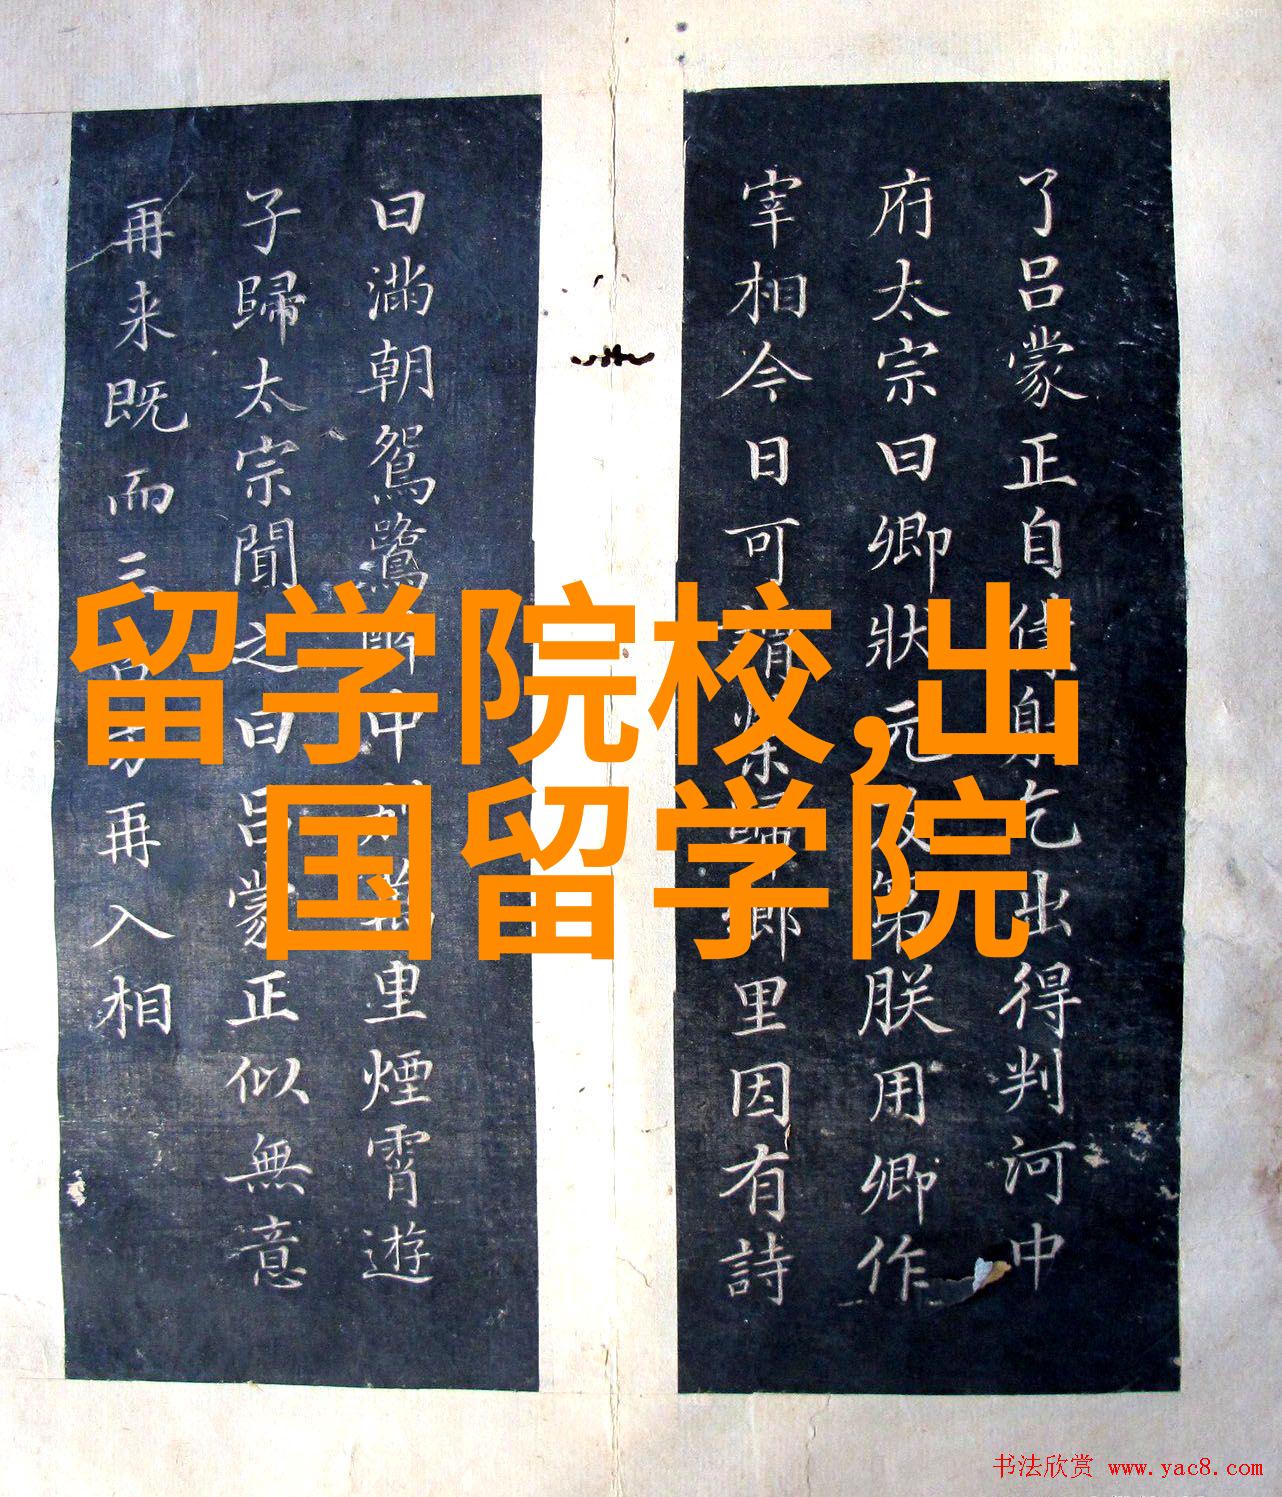 了吕蒙正自僕身乞出得判河中
府太宗曰卿狀元及第朕用卿作
宰相今日可謂榮歸鄉里因有詩
曰滿朝鴛鷺醉中別萬里煙霄遊
子歸太宗聞之曰吕蒙正似無意
再来既而三日乃再入相
留学院校,出
国留学院
书法欣赏 www.yac8.com